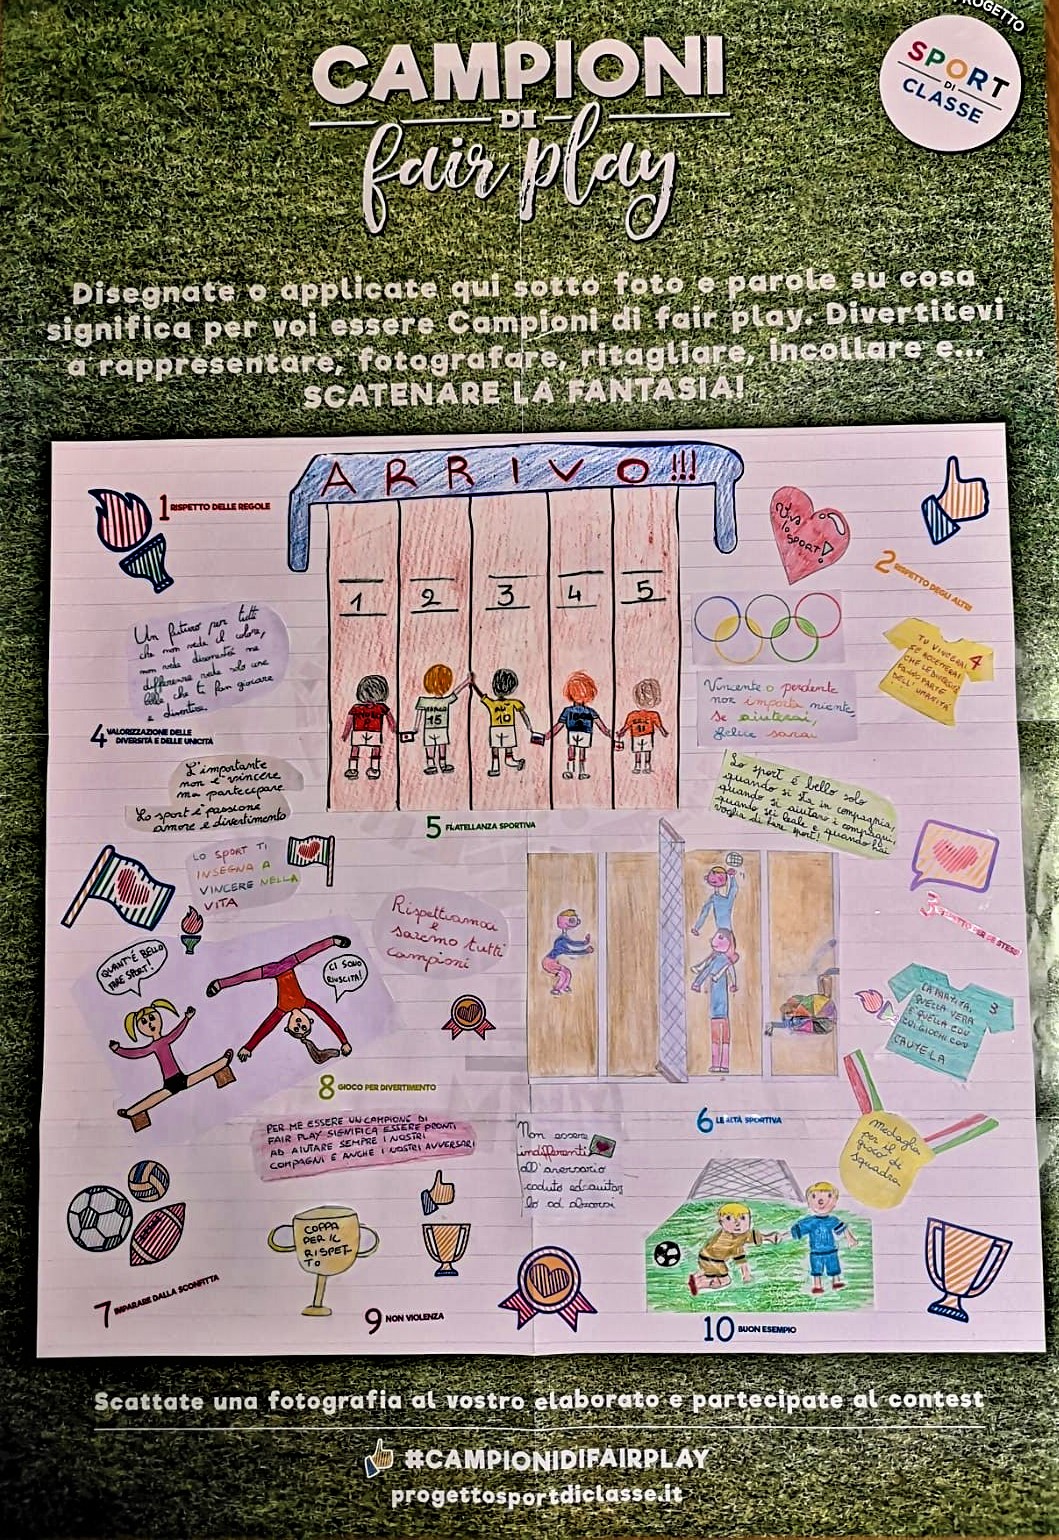 PROGETTO
SPORT
DI
CLASSE
CAMPIONI
DI
fair play
Disegnate o applicate qui sotto foto e parole su cosa
significa per voi essere Campioni di fair play. Divertitevi
a rappresentare, fotografare, ritagliare, incollare e...
SCATENARE LA FANTASIA!
ARRIVO!!!
1 RISPETTO DELLE REGOLE
Viva
lo
SPORT
2 RISPETTO DEGLI ALTRI
1
2
3
4
5
Un futuro per tutti
che non vede il colore,
non vede diversità ne
differenze vede solo una
che ti fan giocare
e divertire.
TU VINCERAI
SE ACCETTERAI
CHE LE DIVERSITÀ
FANNO PARTE
DELL'UMANITÀ
4
Vincente o perdente
non importa niente,
se aiuterai,
felice sarai
15
ALI
10
4 VALORIZZAZIONE DELLE
DIVERSITÀ E DELLE UNICITÀ
L'importante
non è vincere
ma partecipare
Lo sport è passione
amore e divertimento
Lo sport è bello solo
quando si sta in compagnia,
quando si aiutano i compagni,
quando sei leale e quando hai
voglia di fare sport!
5 FRATELLANZA SPORTIVA
LO SPORT TI
INSEGNA A
VINCERE NELLA
VITA
3 RISPETTO PER SE STESSI
Rispettiamoci
e
saremo tutti
campioni
QUANT'È BELLO
FARE SPORT!
CI SONO
RIUSCITA!
LA PARTITA,
QUELLA VERA
È QUELLA CON
CUI GIOCHI CON
CAUTELA
3
8 GIOCO PER DIVERTIMENTO
6 LEALTÀ SPORTIVA
PER ME ESSERE UN CAMPIONE DI
FAIR PLAY SIGNIFICA ESSERE PRONTI
AD AIUTARE SEMPRE I NOSTRI
COMPAGNI E ANCHE I NOSTRI AVVERSARI
Non essere
indifferenti
all'aversario
caduto ed aiutar
lo ad alzarsi
Medaglia
per il
gioco di
squadra
COPPA
PER IL
RISPET-
TO
7 IMPARARE DALLA SCONFITTA
9 NON VIOLENZA
10 BUON ESEMPIO
Scattate una fotografia al vostro elaborato e partecipate al contest
#CAMPIONIDIFAIRPLAY
progettosportdiclasse.it